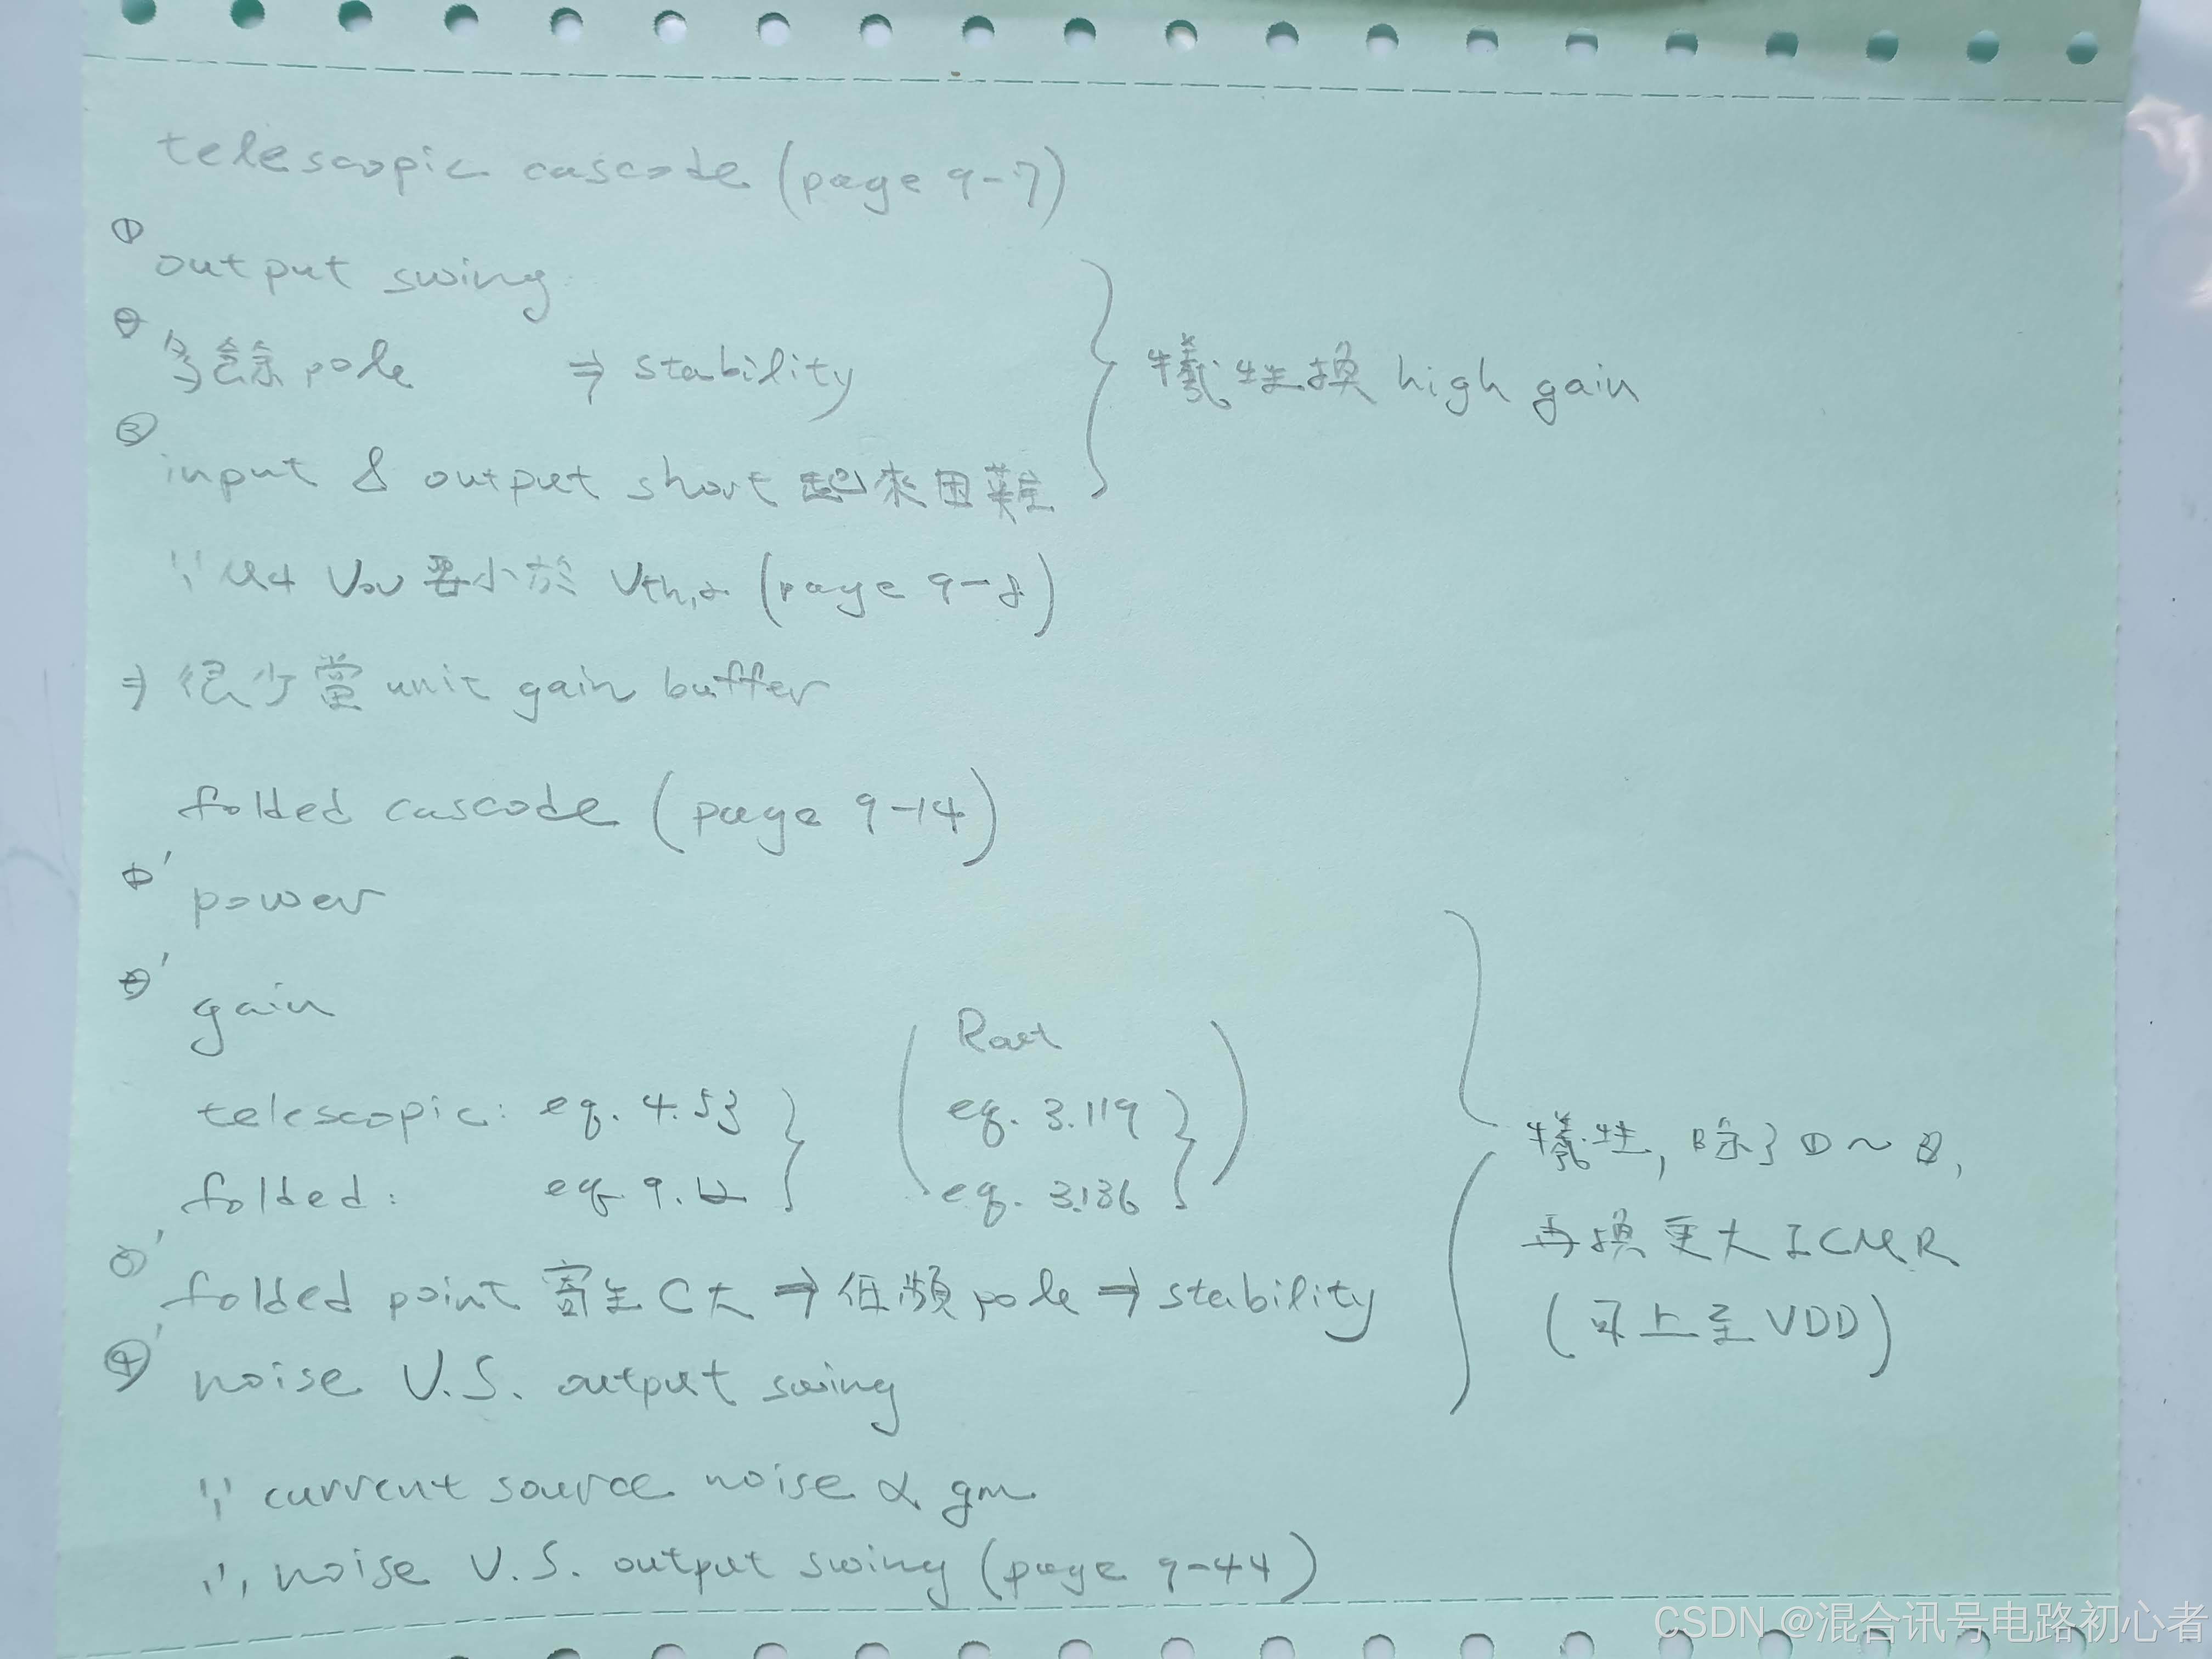 telescopic cascode (page 9-7)
① output swing
② 多餘 pole ⇒ stability
③ input & output short 起來困難
} 犧牲換 high gain
∵ M4 Vov 要小於 Vth,2 (page 9-8)
⇒ 很少當 unit gain buffer
folded cascode (page 9-14)
①' power
②' gain
Rout
telescopic: eq. 4.53 } eq. 3.119
folded: eq. 9.12 } eq. 3.136
③' folded point 寄生 C大 ⇒ 低頻 pole ⇒ stability
④' noise V.S. output swing
犧牲, 除了 ①~③,
再換更大 ICMR
(可上至 VDD)
∵ current source noise ∝ gm
∴ noise V.S. output swing (page 9-44)
CSDN @混合讯号电路初心者